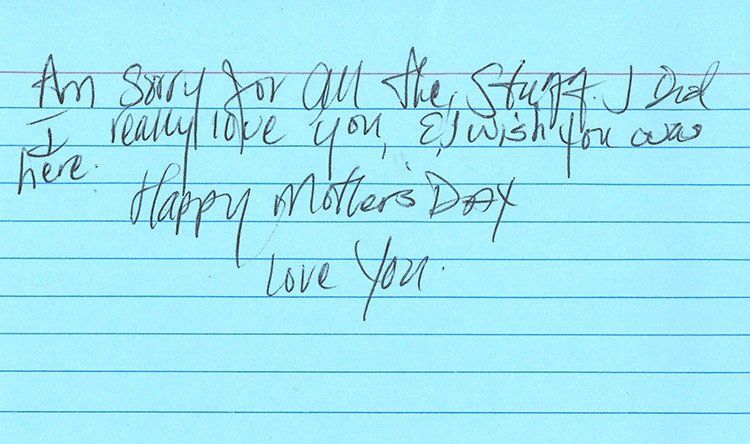 Am sorry for all the, Stuff. I Did
I really love you, & I wish you was
here.
Happy Mother's DAY
Love You.